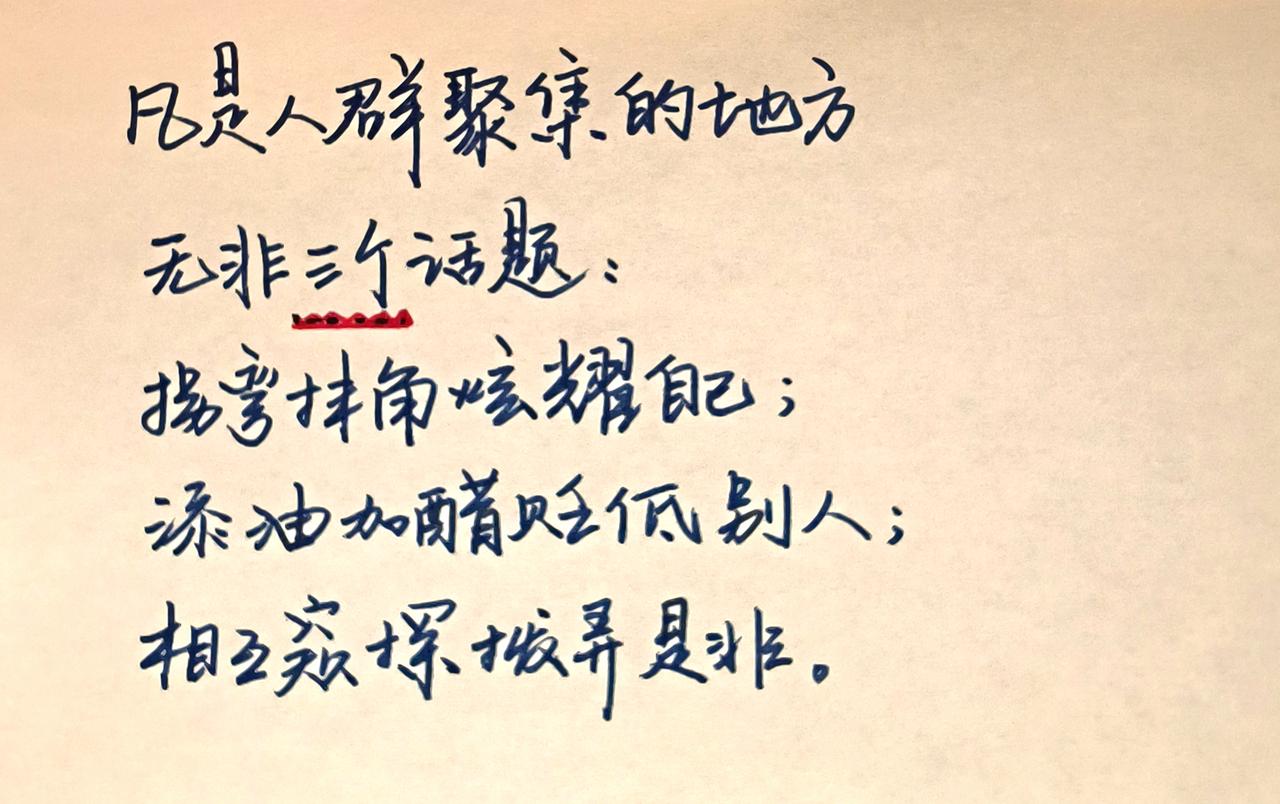 凡是人群聚集的地方
无非三个话题：
拐弯抹角炫耀自己；
添油加醋贬低别人；
相互窥探拨弄是非。